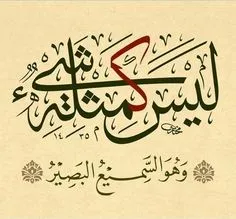 لَيْسَ كَمِثْلِهِ شَيْءٌ
١٤٣٥
وَهُوَ السَّمِيعُ البَصِيرُ